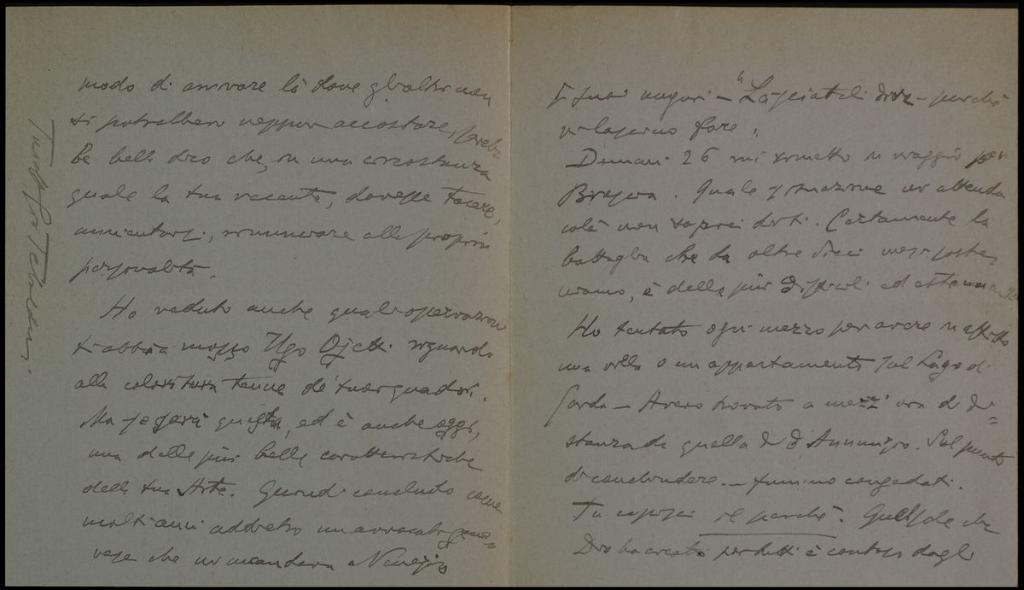 modo di arrivare là dove gli altri non
si potrebbero neppur accostare, sarebbe
be bella dico che, in una circostanza
quale la tua vacanza, dovesse tacere,
annientarsi, rinunciare alla propria
personalità.
Ho veduto anche quali osservazioni
ti abbia mosso Ugo Ojetti riguardo
alla coloritura tenue de' tuoi quadri.
Ma se sarà questa, ed è anche oggi,
una delle più belle caratteristiche
della tua Arte. Quindi concludo come
molti anni addietro un avvocato
che mi mandava a Venezia
i suoi auguri - "Lasciateli dire - purché
vi lascino fare.
Domani 26 mi rimetto in viaggio per
Brescia. Quale situazione mi attenda
colà non saprei dirti. Certamente la
battaglia che da oltre dieci mesi
è delle più difficili ed
Ho tentato ogni mezzo per avere in affitto
una villa o un appartamento sul Lago di
Garda - Avevo trovato a mezz'ora di di=
stanza da quella di d'Annunzio. Sul punto
di concludere - fummo congedati.
Tu capisci il perché. Quel sole che
Dio ha creato per tutti è conteso dagli